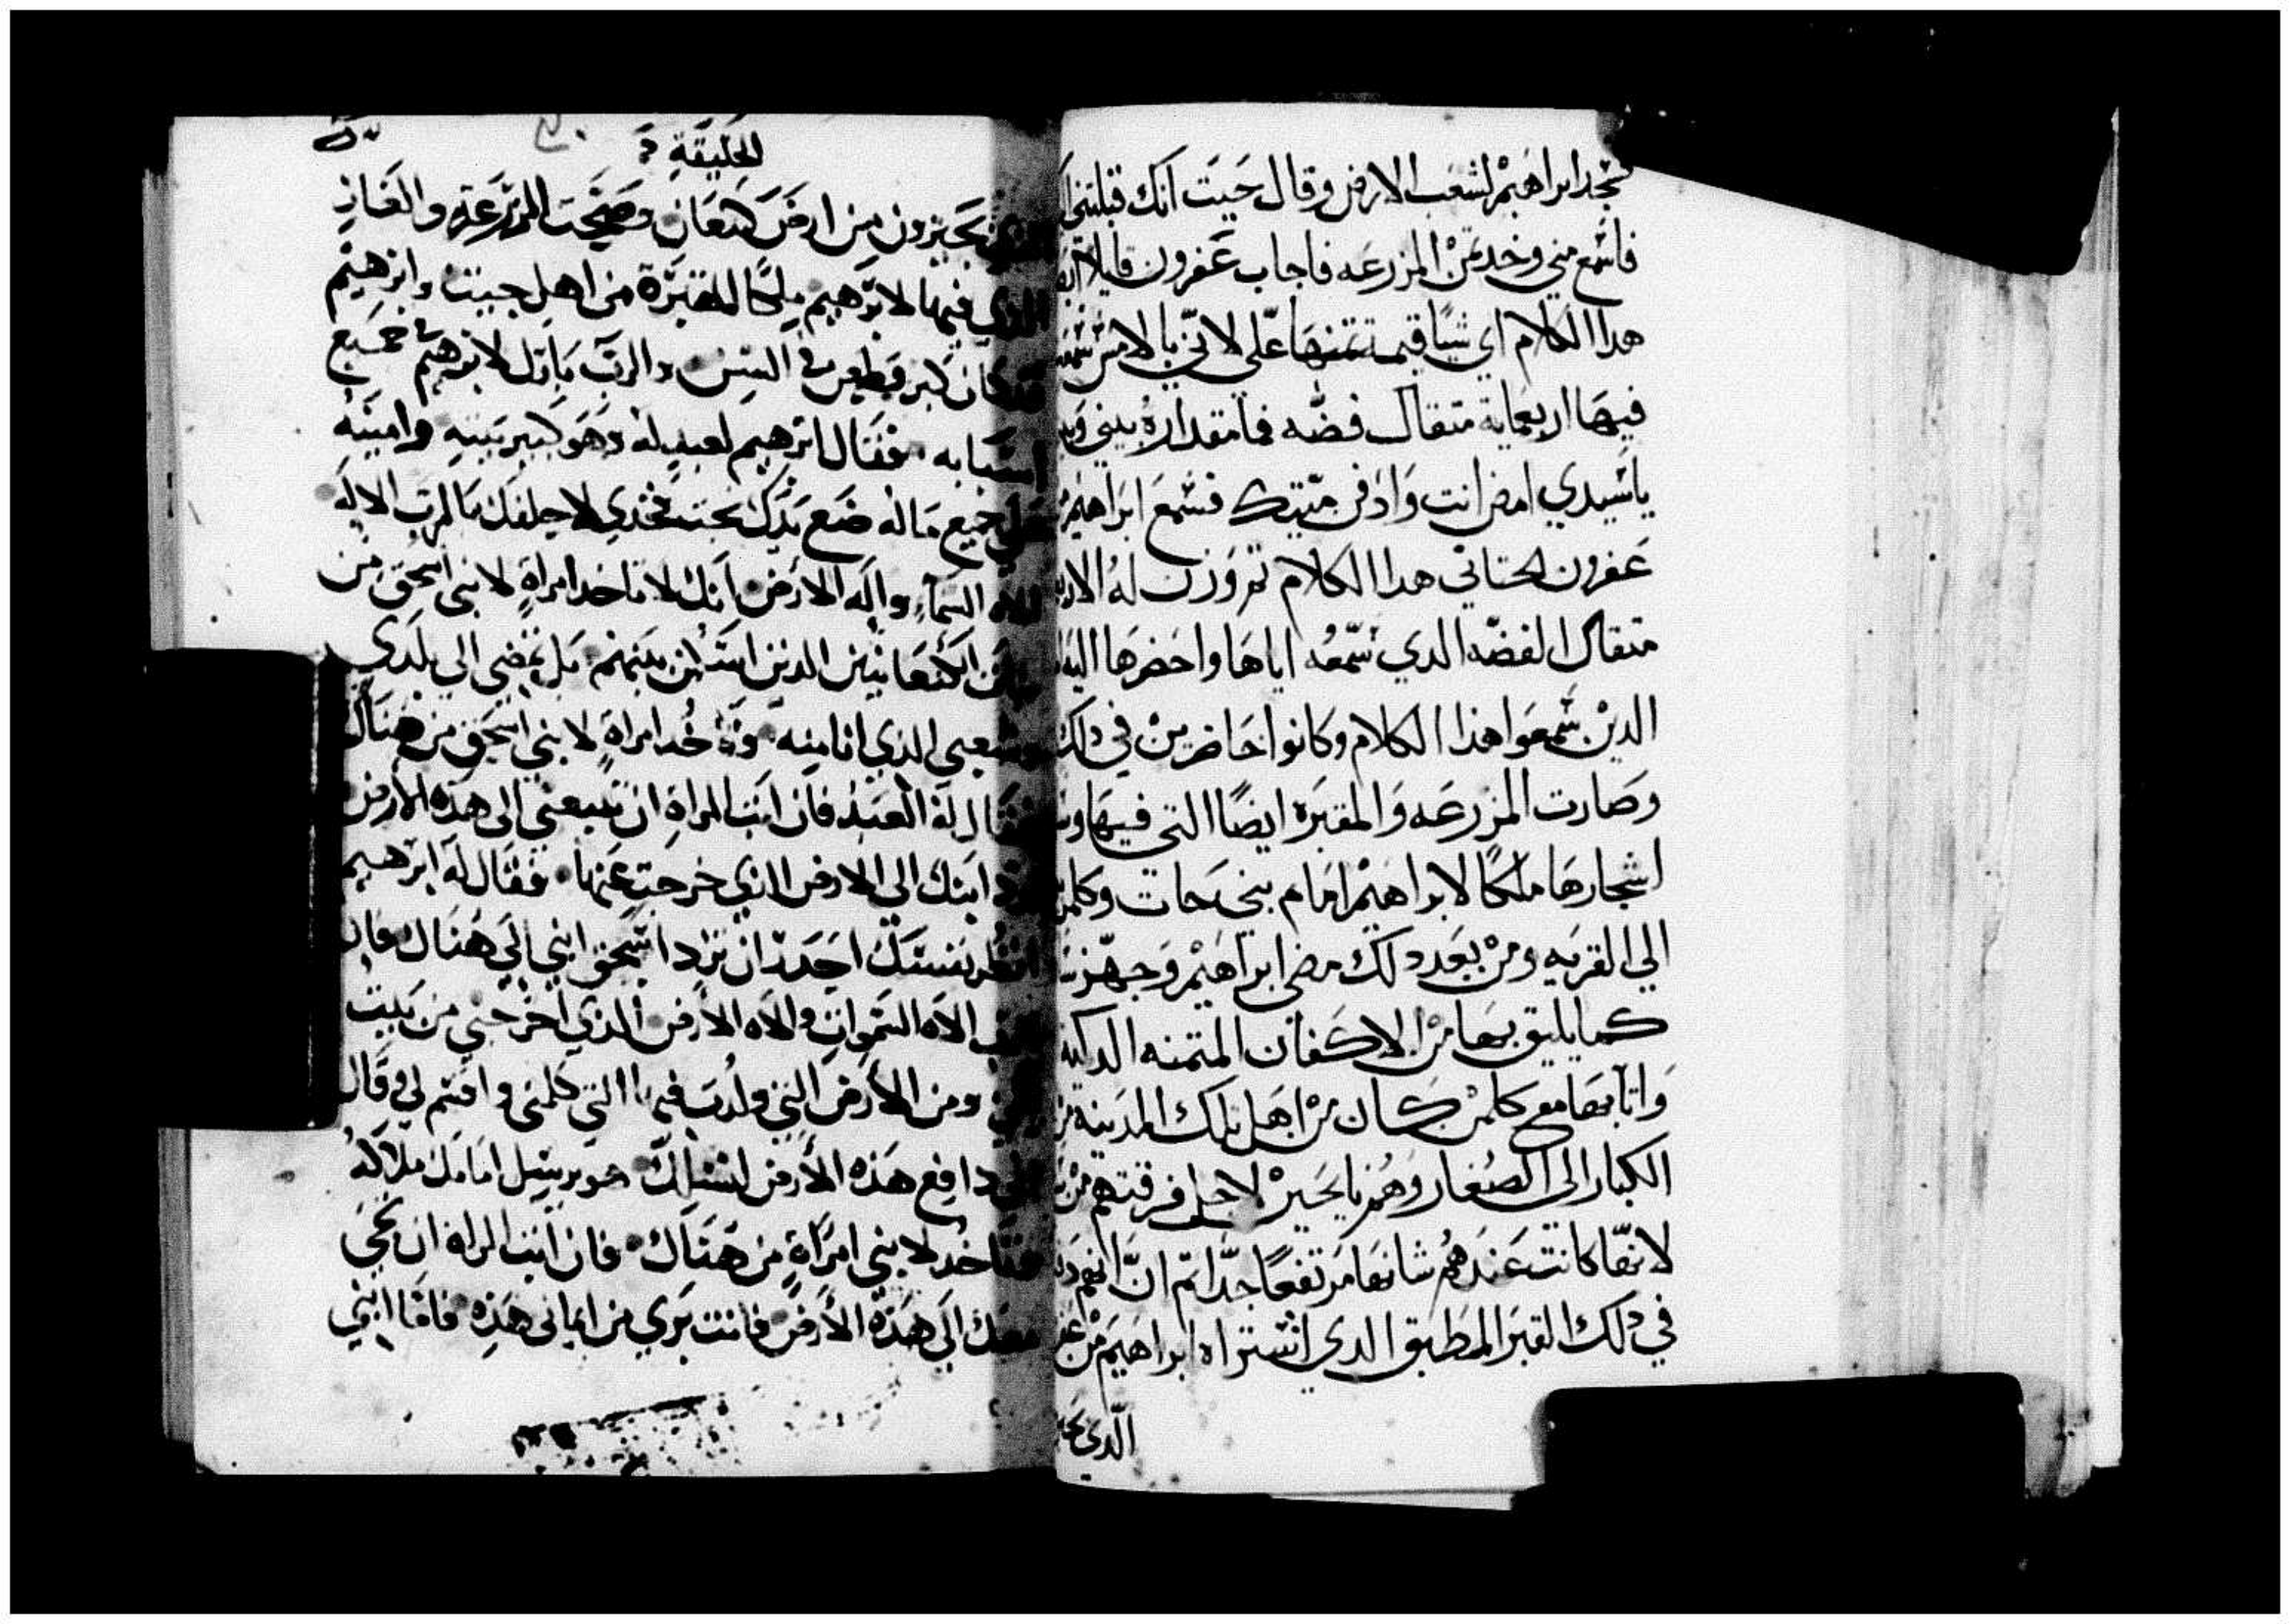 فسجد ابراهيم لشعب الارض وقال حيت انك قبلتني
فاسمع مني وخد تمن المزرعه فاجاب عفرون قايلا
هدا الكلام اي شيًا قيمة تمنها علي لاني بالامس
فيها اربعماية متقال فضه فما مقداره بيني
ياسيدي امض انت وادفن ميتتك فسمع ابراهيم
عفرون الحتاني هدا الكلام تم وزن له
متقال الفضه الدي سمعه اياها واحضرها
الدين سمعوا هذا الكلام وكانوا حاضرين في دلك
وصارت المزرعه والمقبره ايضًا التي فيها
اشجارها ملكًا لابراهيم امام بني حات
الي القريه ومن بعد دلك مضي ابراهيم وجهز
كما يليق بها من الاكفان المتمنه الدكيه
واتا بها مع كلمن كان من اهل تلك المدينه
الكبار الى الصغار وهم نايحين لاجل فرقتهم
لانها كانت عندهم شانها مرتفعًا جدًا تم ان
في دلك القبر المطبق الدي اشتراه ابراهيم من
الدي
الخليقة
من ارض كنعان وصحت المزرعة والغار
الذي فيها لابرهيم ملكًا للمقبرة من اهل حيت وابرهيم
كان كبر وطعن في السن والرب بارك لابرهيم في جميع
اسبابه فقال ابرهيم لعبد له وهو كبير بيته وامينه
علي جميع ماله ضع يدك تحت فخدي لاحلفك بالرب الاله
السمآء واله الارض انك لا تاخد امراةٍ لابني اسحق من
بنات الكنعانيين الدين اسكن بينهم بل تمضي الي بلدي
وشعبي الذي انا منه وخد امراةٍ لابني اسحق من هناك
فقال له العبد فان ابت المراة ان تتبعني الى هذه الارض
ابنك الى الارض الذي خرجت عنها فقال له ابرهيم
بنفسك احدر ان ترد اسحق ابني الي هناك فان
الاه السموات والاه الارض الذي اخرجني من بيت
ابي ومن الارض التي ولدت فيها التي كلمني واقسم لي وقال
اني دافع هذه الارض لنسلك هو يرسل امامك ملاكه
فتاخد لابني امراةٍ من هناك فان ابت المراة ان تجي
معك الي هذه الارض فانت بري من ايماني هذه فاما ابني